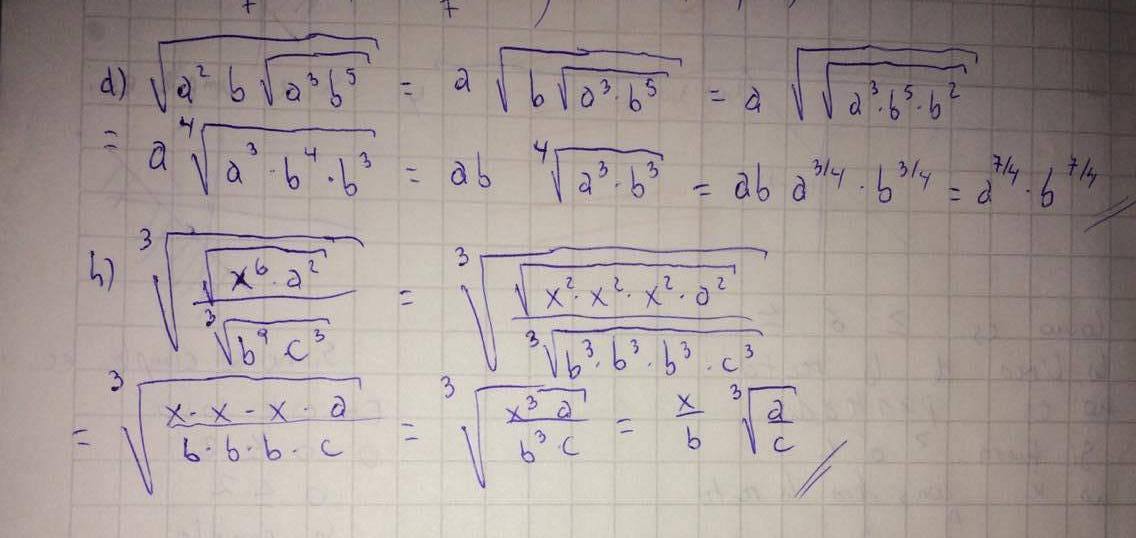 d) √(a² b √(a³ b⁵)) = a √(b √(a³·b⁵)) = a √(√(a³·b⁵·b²))
= a ⁴√(a³·b⁴·b³) = ab ⁴√(a³·b³) = ab a^(3/4)·b^(3/4) = a^(7/4)·b^(7/4)
h) ³√(√(x⁶·a²) / ³√(b⁹ c³)) = ³√(√(x²·x²·x²·a²) / ³√(b³·b³·b³·c³))
= ³√((x·x·x·a) / (b·b·b·c)) = ³√((x³ a) / (b³·c)) = x/b ³√(a/c)